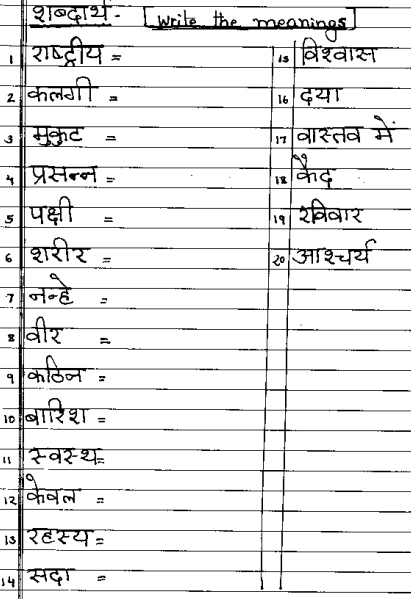 शब्दार्थ - [write the meanings]
1 राष्ट्रीय =
2 कलगी =
3 मुकुट =
4 प्रसन्न =
5 पक्षी =
6 शरीर =
7 नन्हे =
8 वीर =
9 कठिन =
10 बारिश =
11 स्वस्थ =
12 केवल =
13 रहस्य =
14 सदा =
15 विश्वास
16 दया
17 वास्तव में
18 कैद
19 रविवार
20 आश्चर्य